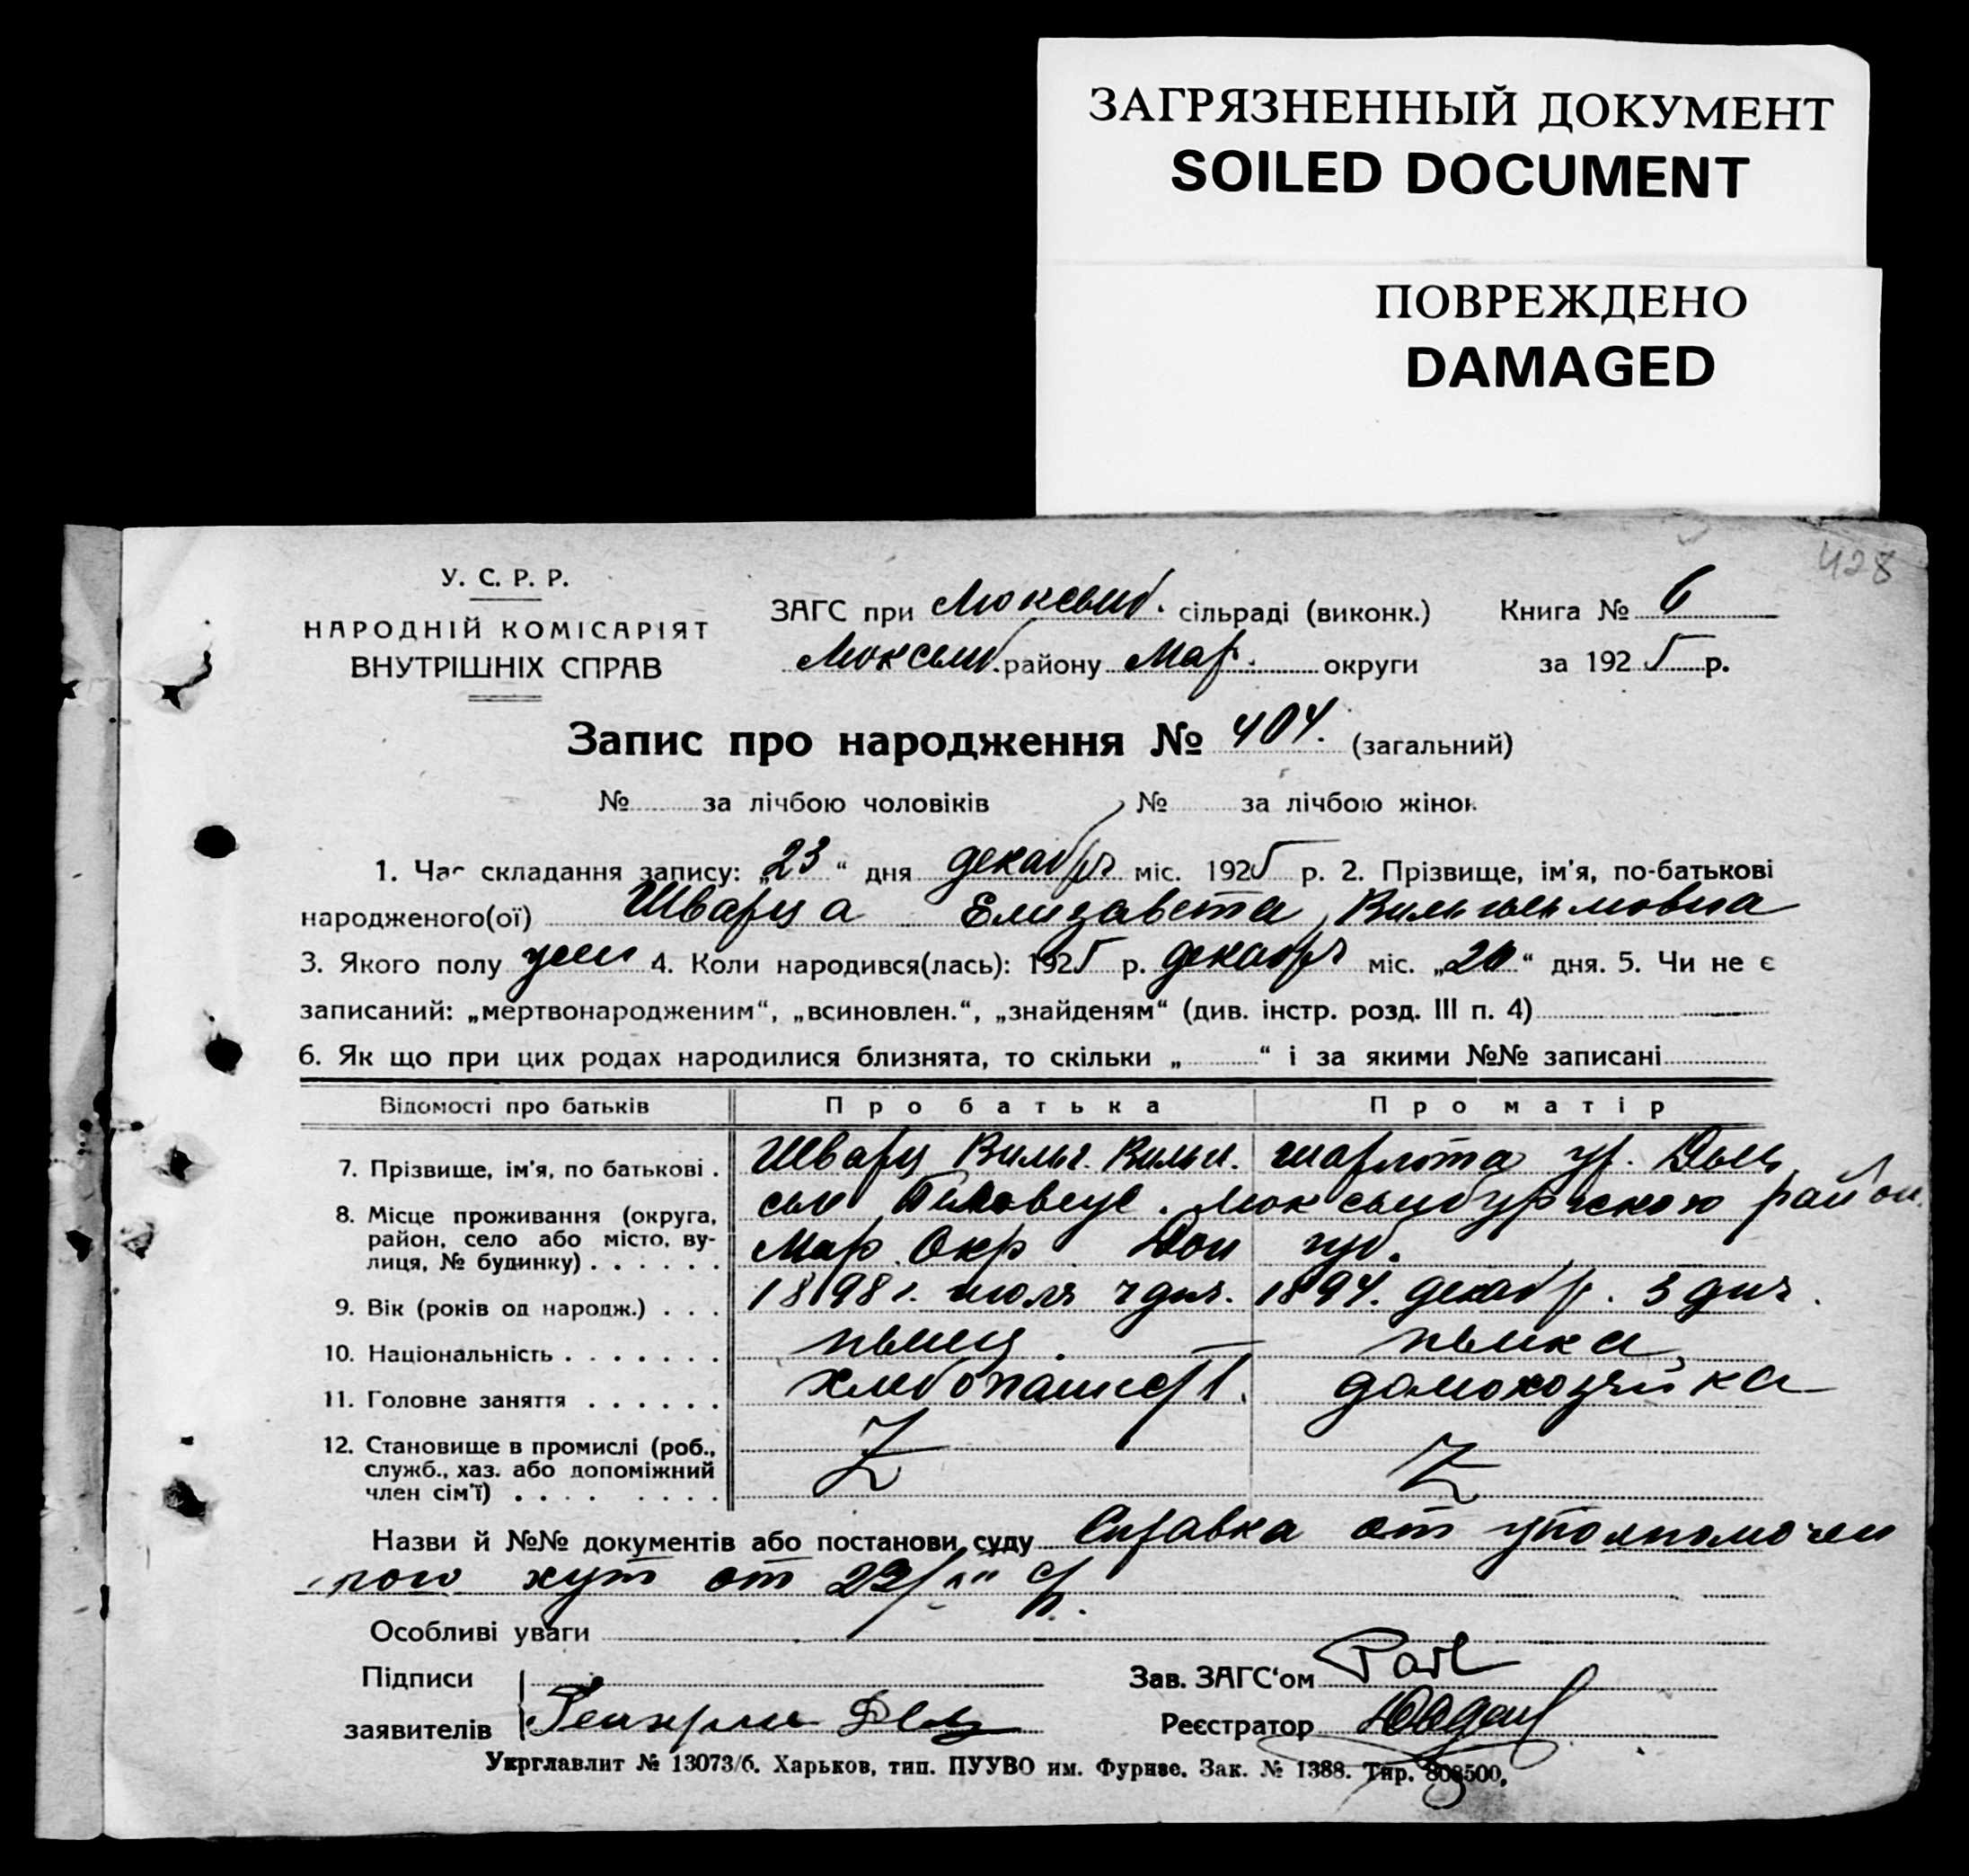 ЗАГРЯЗНЕННЫЙ ДОКУМЕНТ
SOILED DOCUMENT
ПОВРЕЖДЕНО
DAMAGED
428
У. С. Р. Р.
НАРОДНІЙ КОМІСАРІЯТ
ВНУТРІШНІХ СПРАВ
ЗАГС при Люксемб. сільраді (виконк.)
Люксемб. району Мар. округи
Книга № 6
за 1925 р.
Запис про народження № 404. (загальний)
№ за лічбою чоловіків № за лічбою жінок
1. Час складання запису: „23“ дня декабря міс. 1925 р. 2. Прізвище, ім'я, по-батькові
народженого(ої) Шварц а Елизавета Вильгельмовна
3. Якого полу жен 4. Коли народився(лась): 1925 р. декабря міс. „20“ дня. 5. Чи не є
записаний: „мертвонародженим“, „всиновлен.“, „знайденям“ (див. інстр. розд. III п. 4)
6. Як що при цих родах народилися близнята, то скільки „ “ і за якими №№ записані
Відомості про батьків Про батька Про матір
7. Прізвище, ім'я, по батькові . Шварц Вильг. Вильг. шарлота ур.
8. Місце проживання (округа, район, село або місто, вулиця, № будинку) . . . . . . Люксембургского район.
Мар. Окр. Дон губ.
9. Вік (років од народж.) . . . 1898 г. июля 7 дня. 1894. декабр. 3 дня.
10. Національність . . . . . . . немец. — немка
11. Головне заняття . . . . . . хлебопашест. домохозяйка
12. Становище в промислі (роб., служб., хаз. або допоміжний член сім'ї) . . . . . . . . Z Z
Назви й №№ документів або постанови суду Справка от уполномочен
ного хут от
Особливі уваги
Підписи
заявителів
Зав. ЗАГС'ом
Реєстратор
Укрглавлит № 13073/б. Харьков, тип. ПУУВО им. Фрунзе. Зак. № 1388. Тир. 808500.